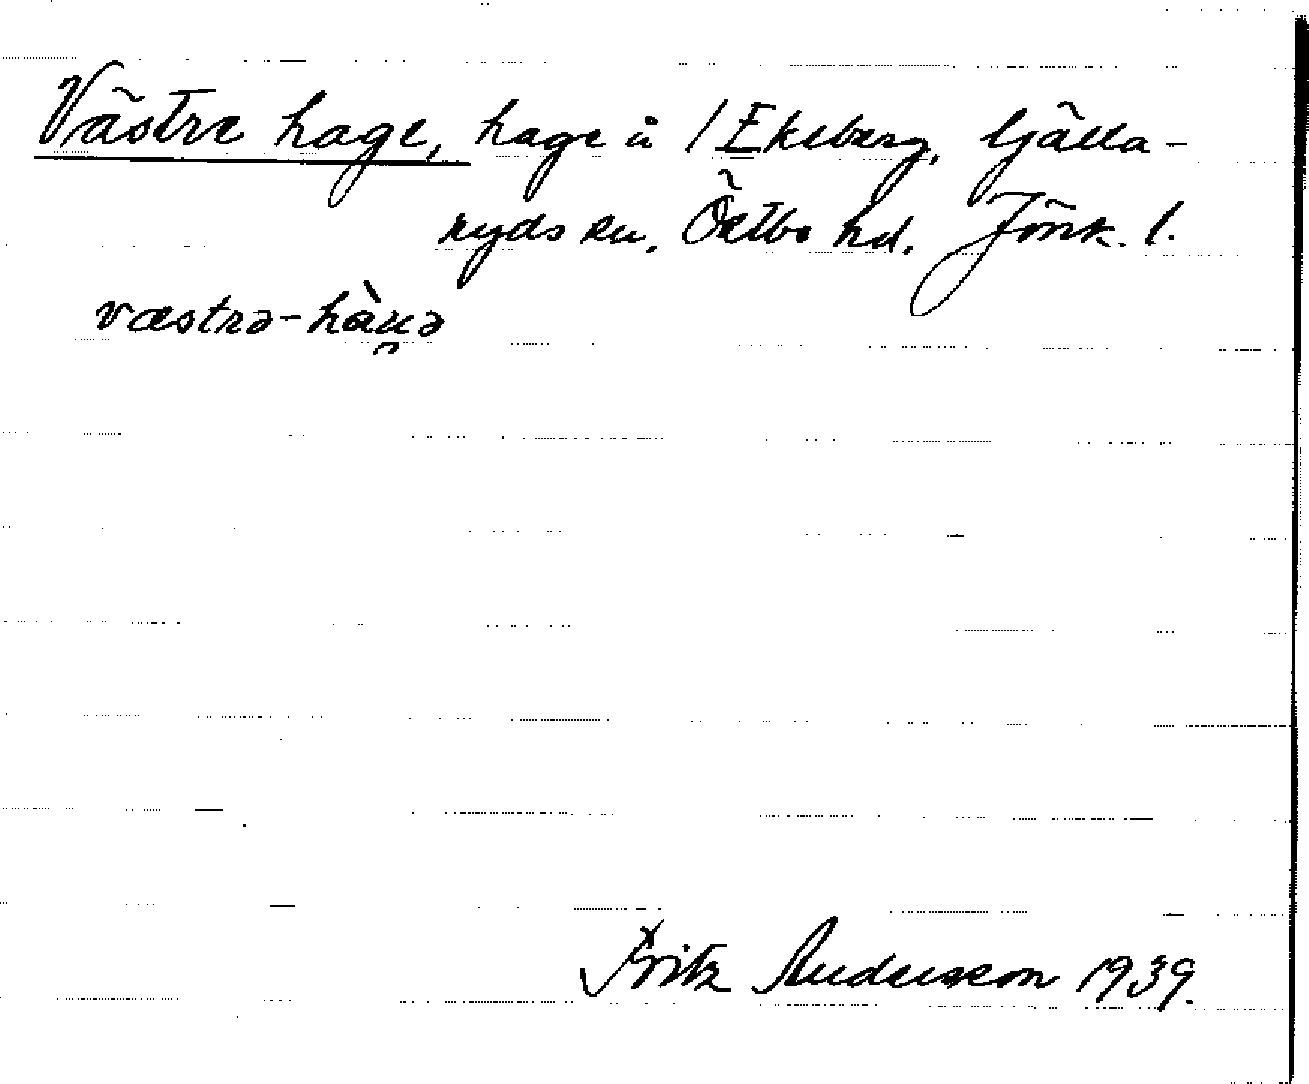 Västre hage, hage å 1 Ekeberg, Gälla-
ryds sn, Östbo hd. Jönk. l.
væstrə-hàu̯ə
Fritz Andersson 1939.